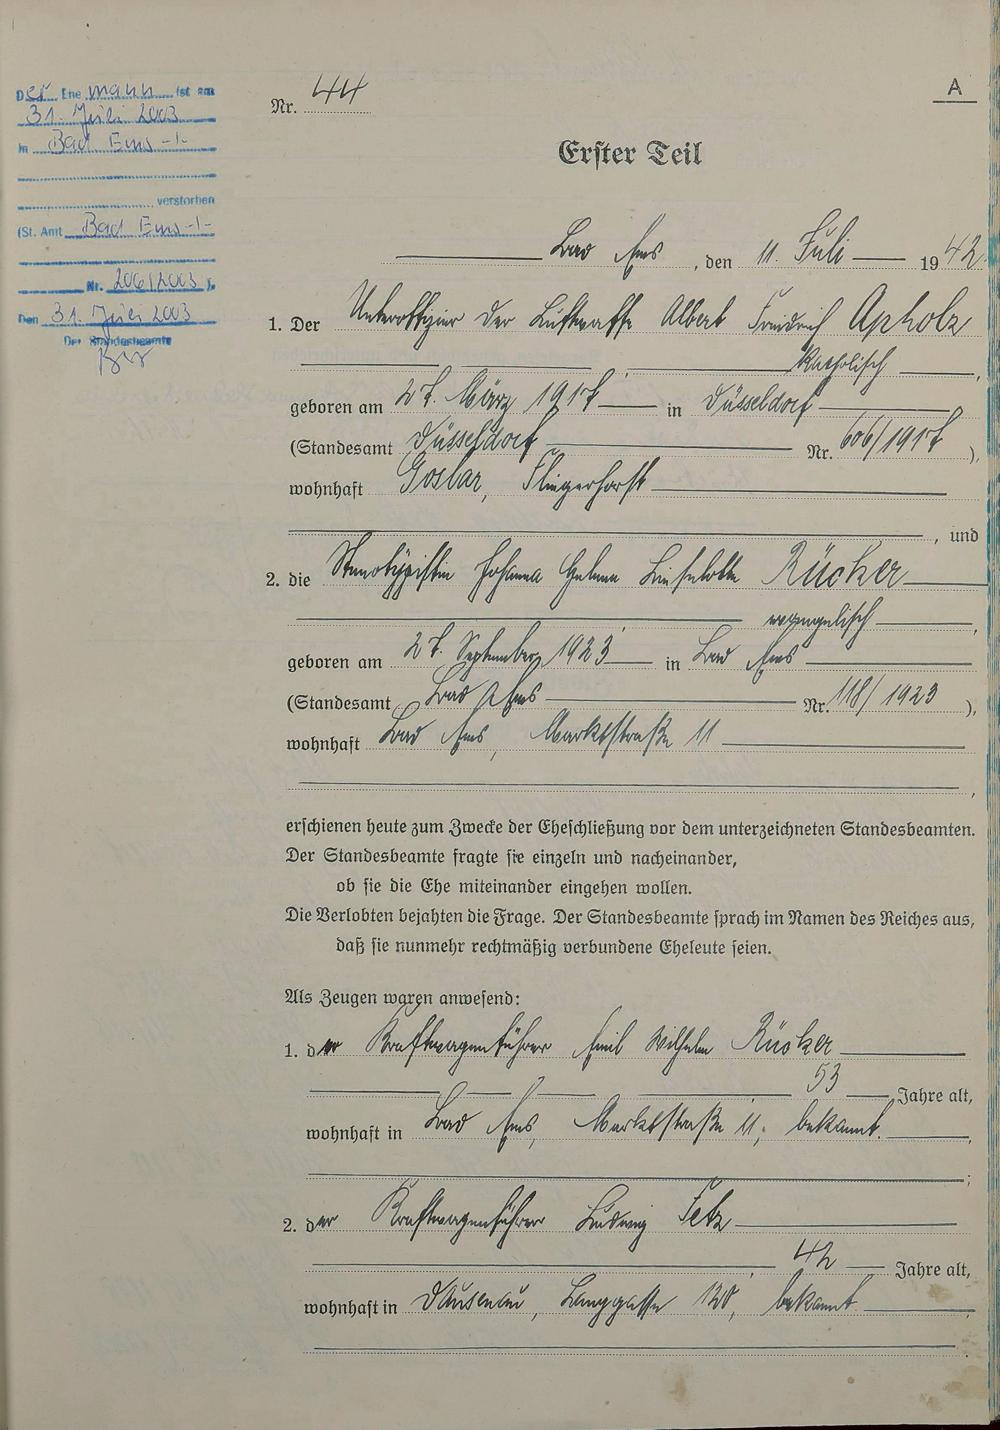 Der Ehemann ist am
31. Juli 2003
in Bad Ems -/-
verstorben
(St. Amt Bad Ems -/-
Nr. 206/2003 ).
Den 31. Juli 2003
Der Standesbeamte
A
Nr. 44
Erster Teil
Bad Ems, den 11. Juli 1942.
1. Der Unteroffizier der Luftwaffe Albert Friedrich Apholz
katholisch,
geboren am 27. März 1917 in Düsseldorf
(Standesamt Düsseldorf Nr. 606/1917),
wohnhaft Goslar, Fliegerhorst
, und
2. die Stenotypistin Johanna Helene Lieselotte Rücker
evangelisch,
geboren am 27. September 1923 in Bad Ems
(Standesamt Bad Ems Nr. 118/1923),
wohnhaft Bad Ems, Marktstraße 11
,
erschienen heute zum Zwecke der Eheschließung vor dem unterzeichneten Standesbeamten.
Der Standesbeamte fragte sie einzeln und nacheinander,
ob sie die Ehe miteinander eingehen wollen.
Die Verlobten bejahten die Frage. Der Standesbeamte sprach im Namen des Reiches aus,
daß sie nunmehr rechtmäßig verbundene Eheleute seien.
Als Zeugen waren anwesend:
1. der Kraftwagenführer Emil Wilhelm Rücker
53 Jahre alt,
wohnhaft in Bad Ems, Marktstraße 11, bekannt.
;
2. der Kraftwagenführer Ludwig
42 Jahre alt,
wohnhaft in Dausenau, Langgasse bekannt.
.